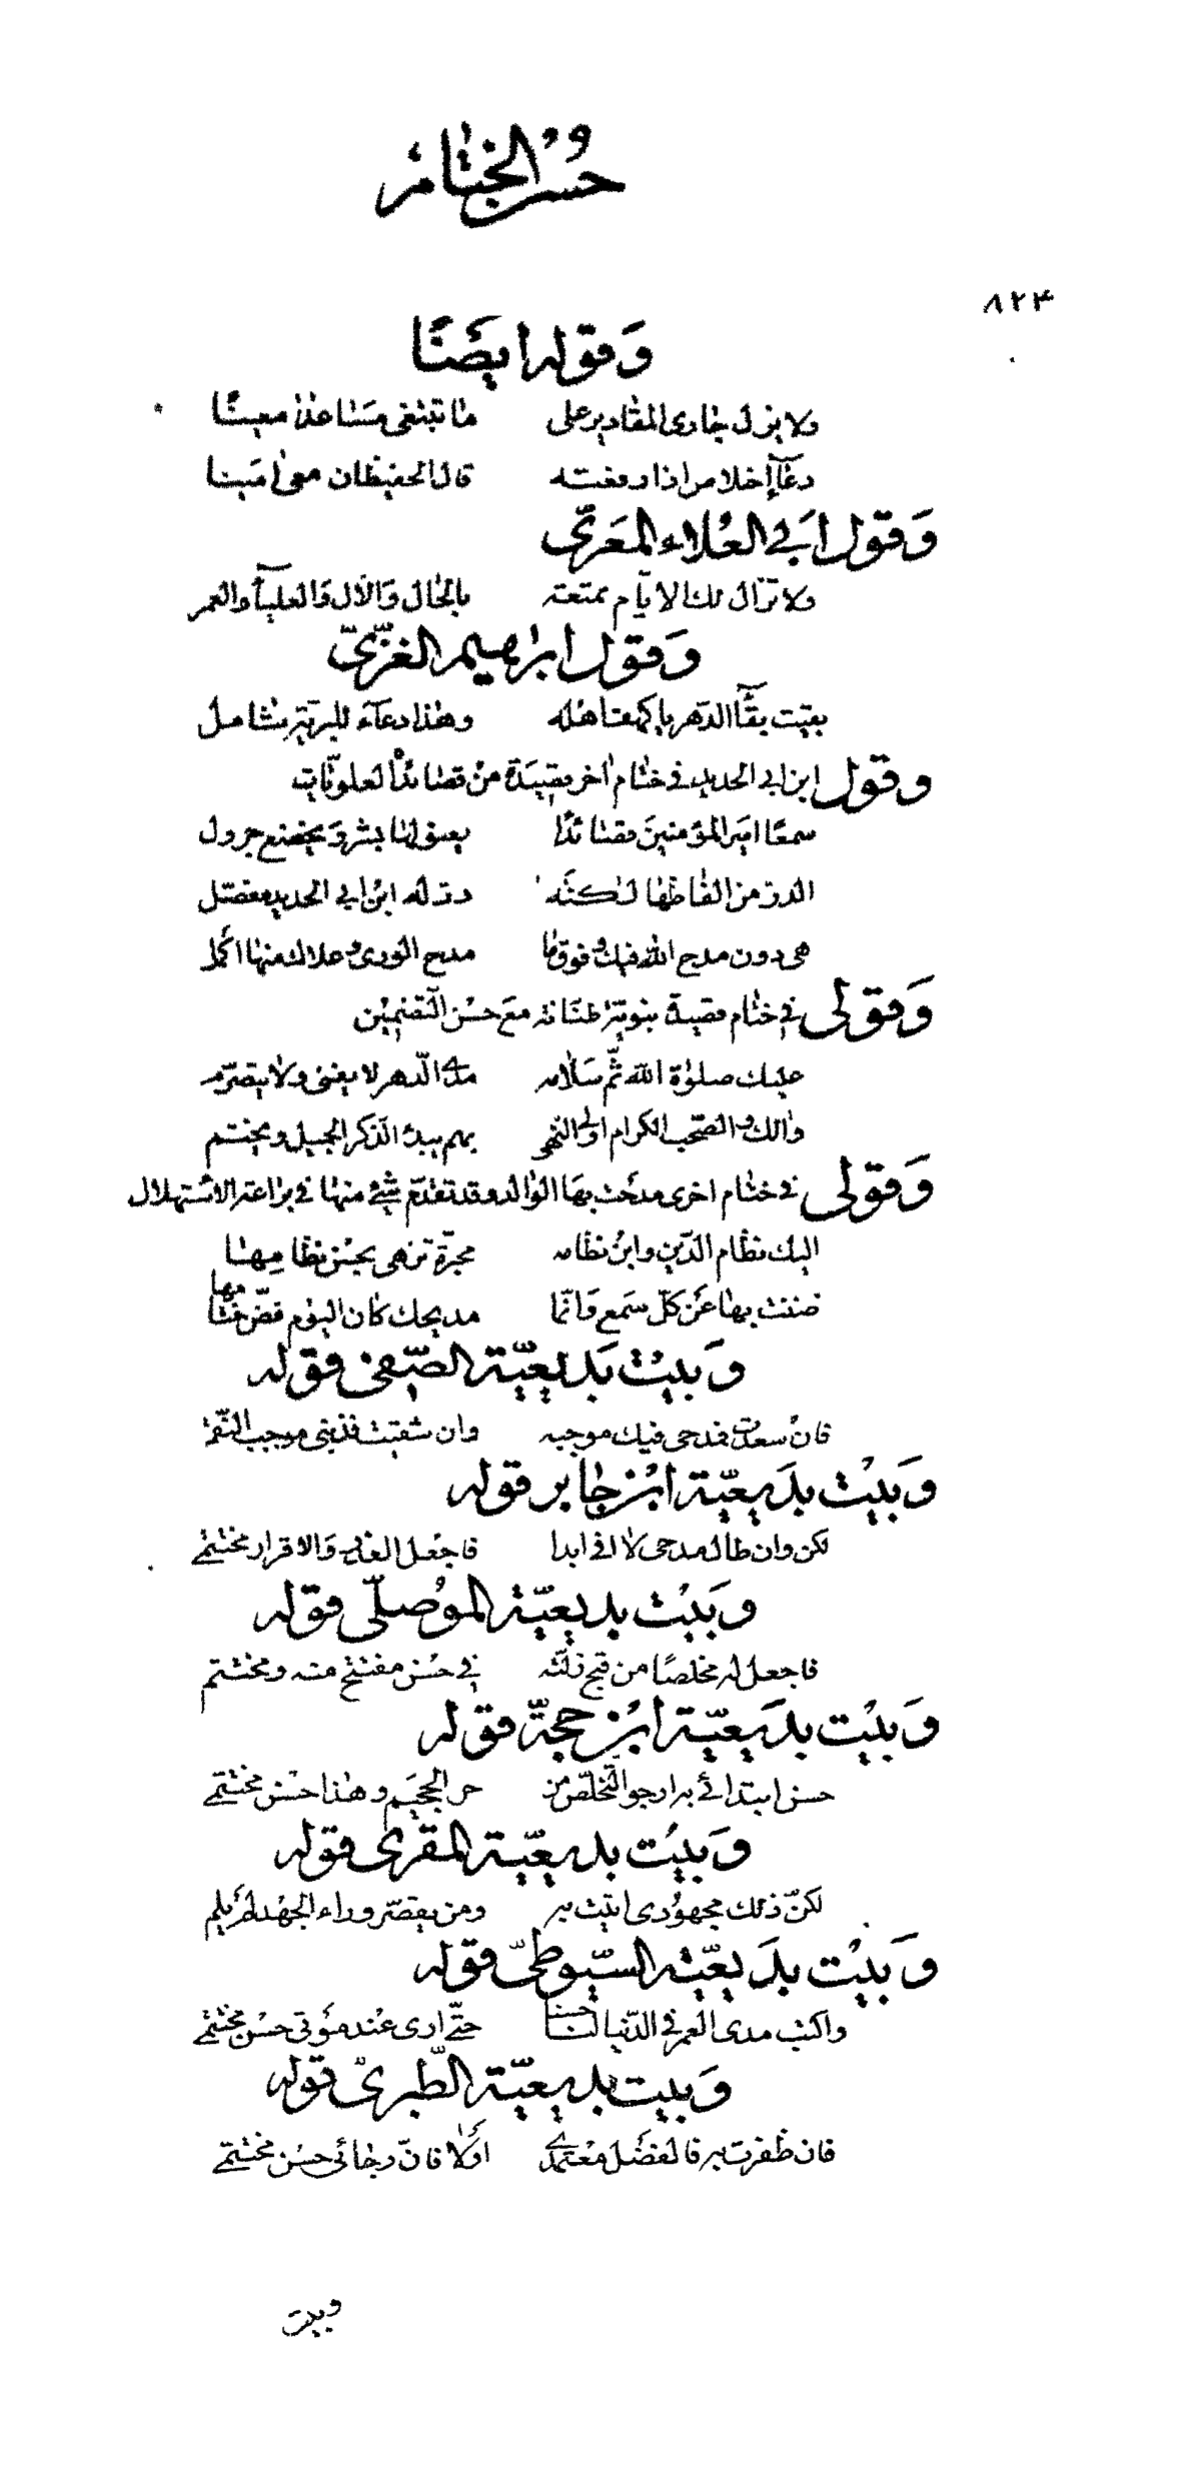 حُسن الختام
۸۲۴
وَقوله ايضًا
ولا يزل جارى المقادير على ما تبتغى مساعدا معينًا
دعآء إخلاص اذا رفعته قال الحفيظان معى امينا
وَقول ابي العُلاء المعَرّى
ولا تزال لك الايّام ممتعة بالحال وَالال وَالعليآء والعمر
وَقول ابراهيم الغزّىّ
بقيت بقآء الدّهر يا كهف اهله وهذا دعآء للبريّة شامل
وقول ابن ابي الحديد في ختام اخر قصيدة من قصائده العلويّات
سمعًا امير المؤمنين قصائدًا يعنو لها بشر وَيخضع جرول
الدرّ من الفاظها لكنّه درّ له ابن ابي الحديد مفصّل
هى دون مدح الله فيك وفوق ما مدح الورى وعلاك منها اكمل
وَقولى في ختام قصيدة نبويّة طنّانة مَع حسْن التّضمين
عليك صلوة الله ثمّ سَلامه مدى الدّهر لا يفنى ولا يتصرّم
والك والصّحب الكرام اولى النّهى بهم يبدء الذّكر الجميل ويختم
وَقولى في ختام اخرى مدَحْت بهَا الوالد وقد تقدّم شئ منها في براعة الاستهلال
اليك نظام الدّين وابن نظامه مجرّة تزهى بحسْن نظامِها
ضننت بها عَن كلّ سَمع وَانّما مديحك كان اليوم فضّ ختامها
وَبيْت بَديعيّة الصّفى قوله
فانْ سعدت فمدحى فيك موجبه وان شقيت فذنبى موجب النّقم
وَبيْت بدَيعيّة ابْن جابر قوله
لكن وان طال مدحى لا افى ابدا فاجْعل العذر وَالاقرار مختتمى
وبَيْت بديعيّة الموْصلّى قوله
فاجعل له مخلصًا من قبح زلّته في حسْن مفتتح منه ومختتم
وَبيْت بدَيعيّة ابْن حجّة قوله
حسن ابتدائى به ارجو التّخلّص من حر الجحيم وهذا حسْن مختتمى
وَبيْت بديعيّة المقرى قوله
لكنّ ذلك مجهوْدى اتيت به ومن يقصّر وراء الجهْد لم يلم
وَبيْت بدَيعيّة السّيوطىّ قوله
واكتب مدى العمر في الدّنيا لنا حسنا حتّى ارى عنْد موْتى حسْن مختتمى
وَبيت بديعيّة الطّبرىّ قوله
فان ظفرت به فالفضْل معْتمدى اوْلا فانّ رجائى حسْن مختتمى
وبيت